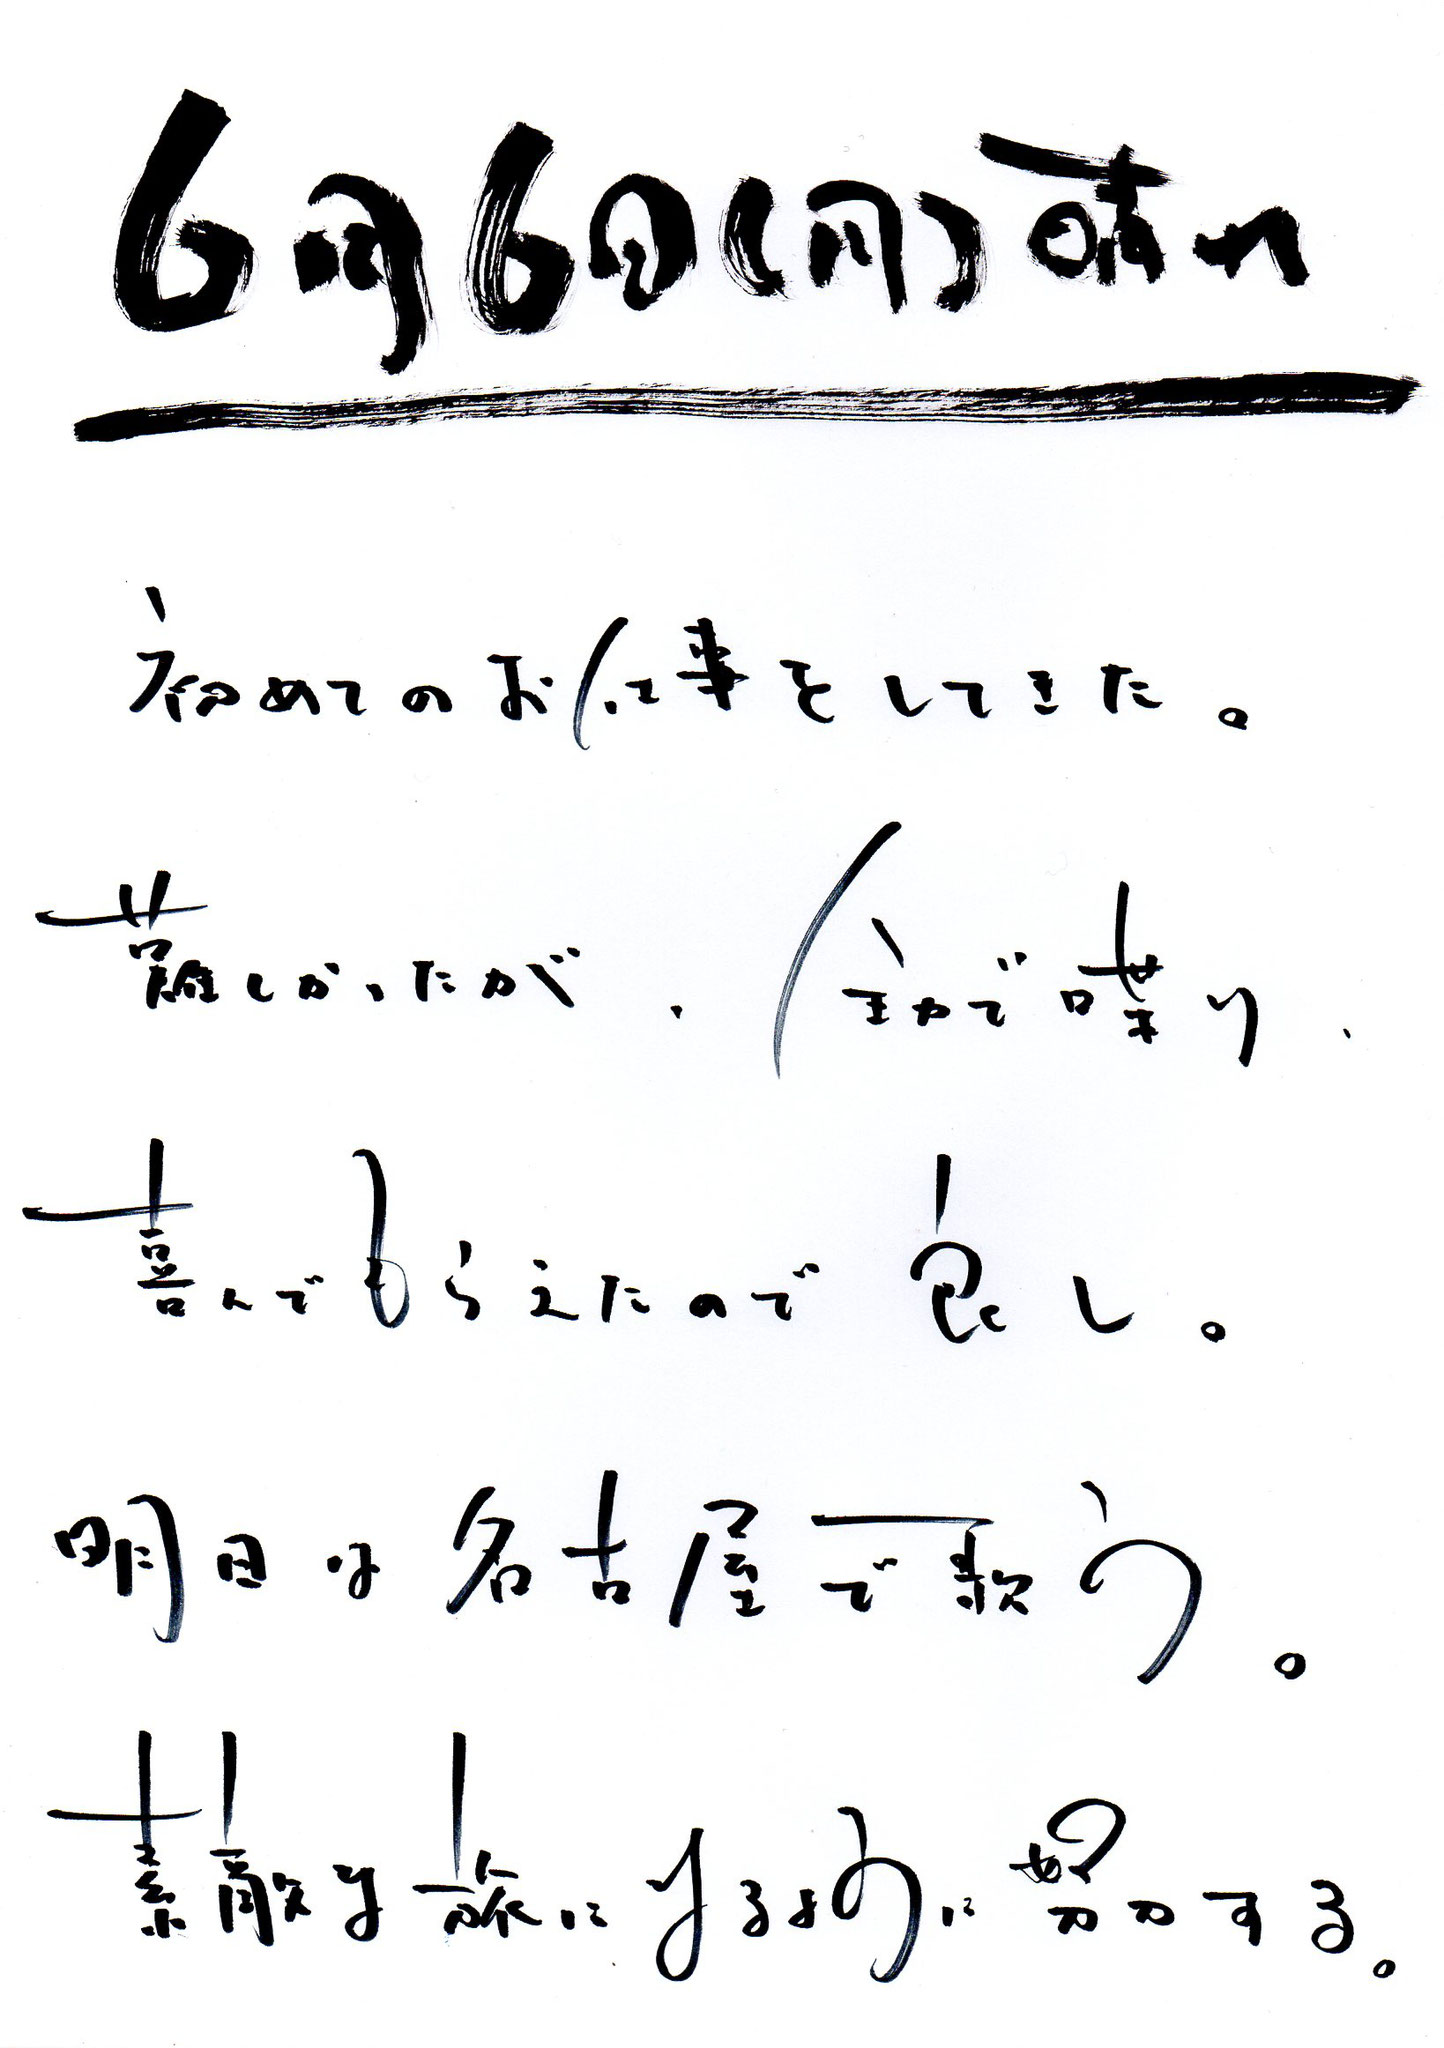 6月6日(月)晴れ
初めてのお仕事をしてきた。
難しかったが、全力で喋り、
喜んでもらえたので良し。
明日は名古屋で歌う。
素敵な旅になるように努力する。